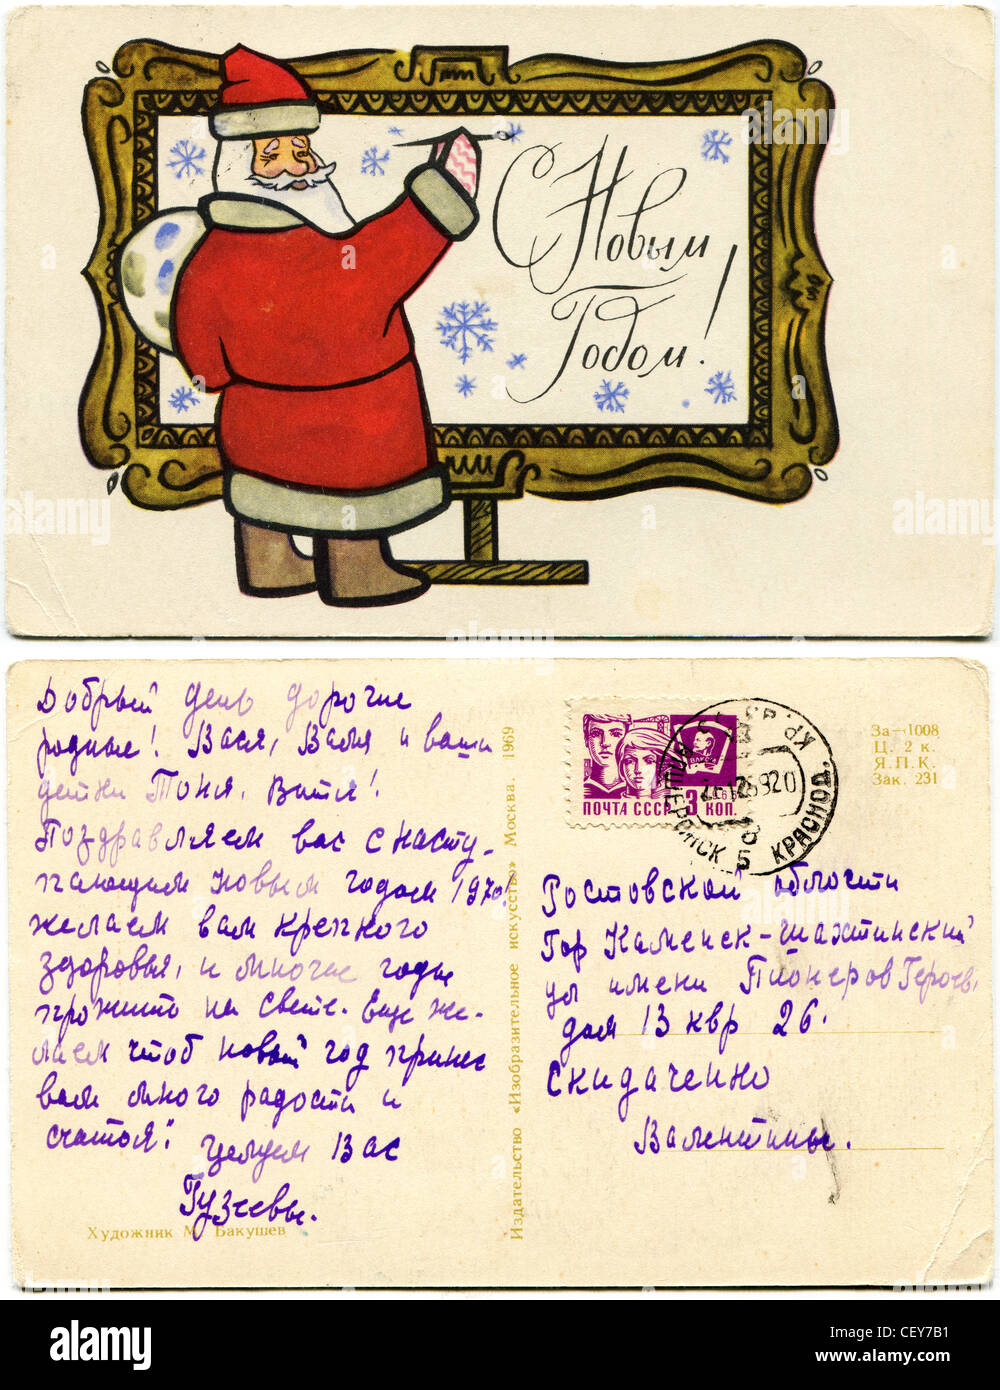 С Новым
Годом!
Добрый день дорогие
родные! Вася, Валя и ваши
детки Тоня, Витя!
Поздравляем вас с насту-
пающим новым годом 1970!
желаем вам крепкого
здоровья, и многие годы
прожить на свете. Еще же-
лаем чтоб новый год принес
вам много радости и
счастья.
Целуем Вас
Гузчевы.
Художник М. Бакушев
Издательство «Изобразительное искусство» Москва. 1969
ПОЧТА СССР 3 КОП.
ВЛКСМ
КРАСНОД.
За—1008
Ц. 2 к.
Я.П.К.
Зак. 231
Ростовской области
Гор Каменск-шахтинский
ул имени Пионеров Героев.
дом 13 квр 26.
Скидаченко
Валентины.
alamy
Image ID: CEY7B1
www.alamy.com